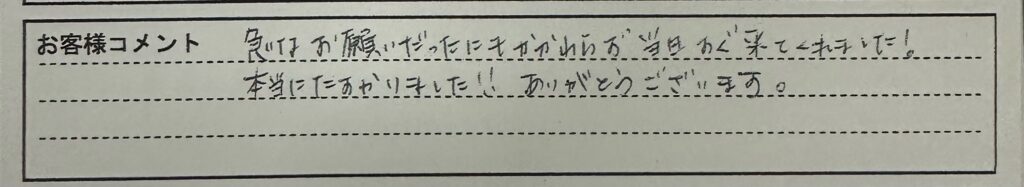 お客様コメント 急なお願いだったにもかかわらず当日すぐ来てくれました!
本当にたすかりました!! ありがとうございます。